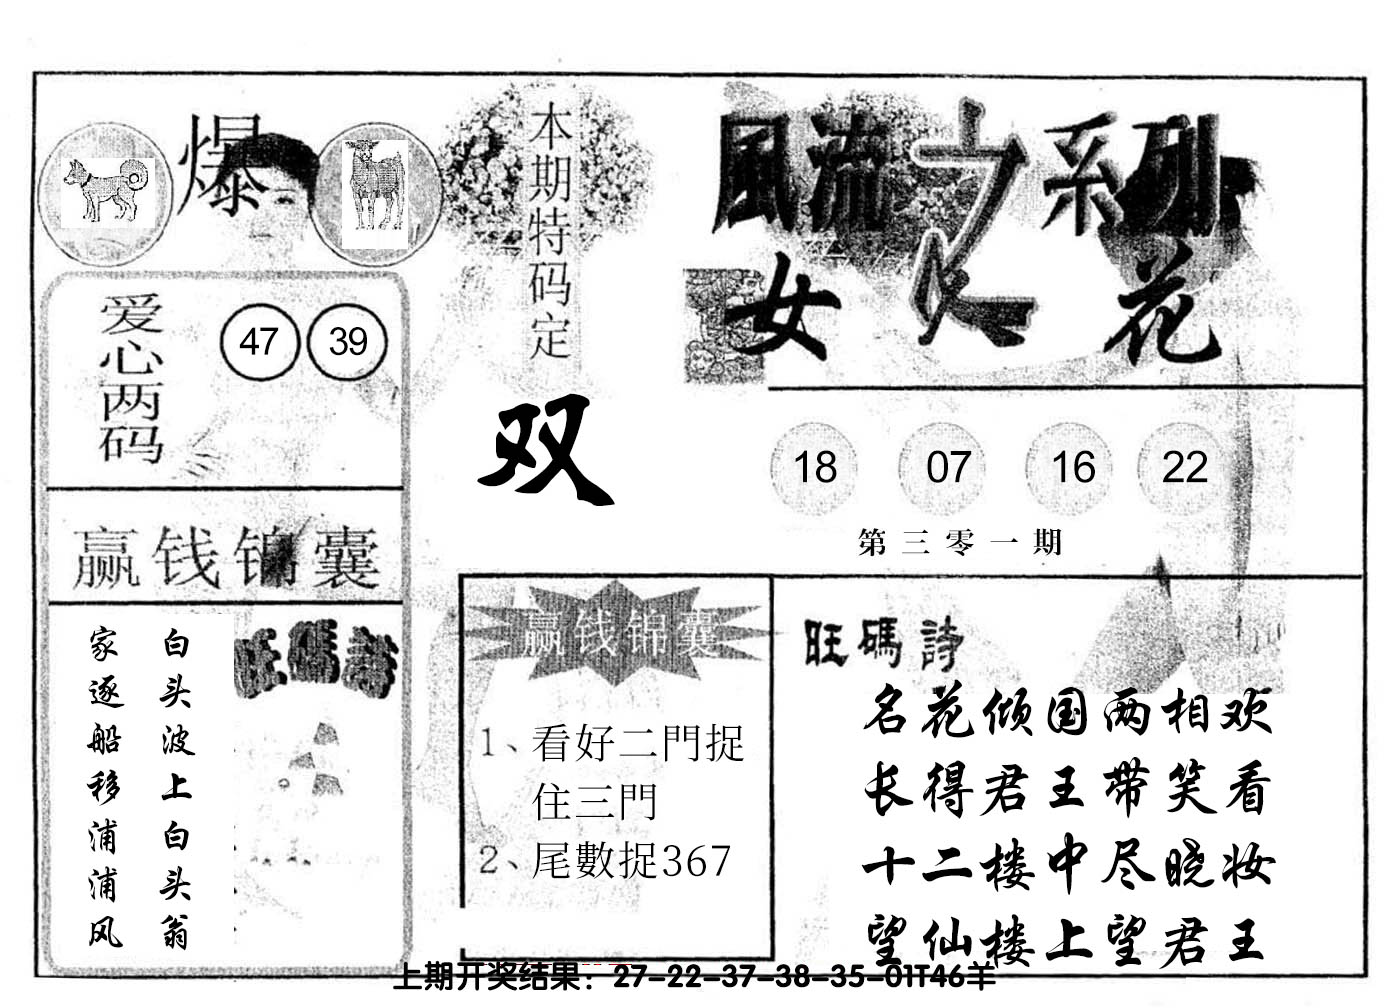 爆
本期特码定
双
風流之系列
女人花
爱心两码
47 39
18 07 16 22
第三零一期
赢钱锦囊
白头波上白头翁
家逐船移浦浦风
旺碼詩
赢钱锦囊
1、看好二門捉
住三門
2、尾數捉367
旺碼詩
名花倾国两相欢
长得君王带笑看
十二楼中尽晓妆
望仙楼上望君王
上期开奖结果：27-22-37-38-35-01T46羊